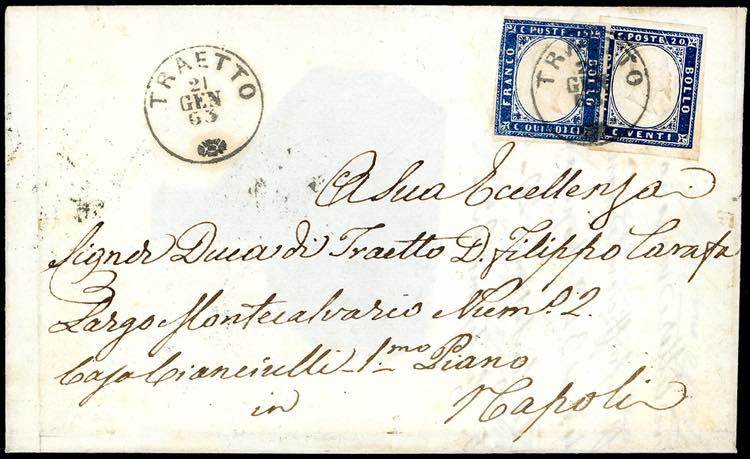 TRAETTO
21
GEN
63
C. POSTE 15
FRANCO
BOLLO
C. QUINDICI
C. POSTE 20
BOLLO
C. VENTI
TRAETTO
GEN
A Sua Eccellenza
Signor Duca di Traetto D. Filippo Carafa
Largo Montecalvario Num.º 2.
Casa Cianciulli - 1.mo Piano
in Napoli